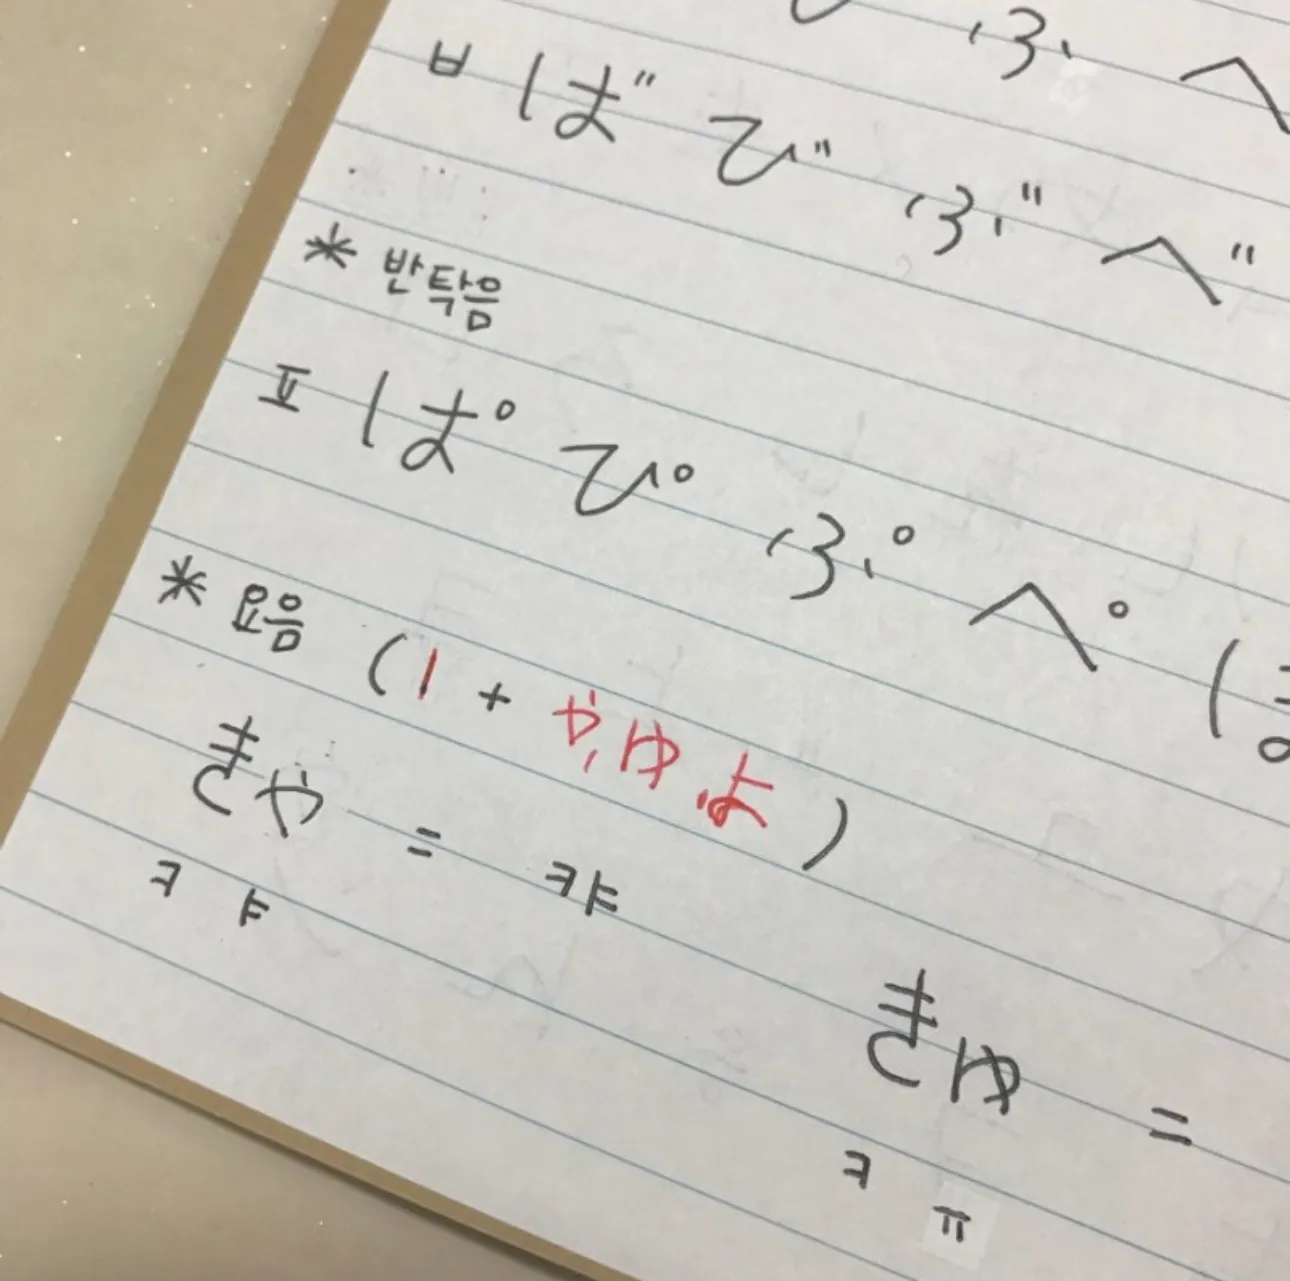 ふ へ
ㅂ ば び ぶ べ
* 반탁음
ㅍ ぱ ぴ ぷ ぺ (ほ
* 요음 (ㅣ + や, ゆ よ)
きや = 캬
ㅋ ㅑ
きゆ =
ㅋ ㅠ